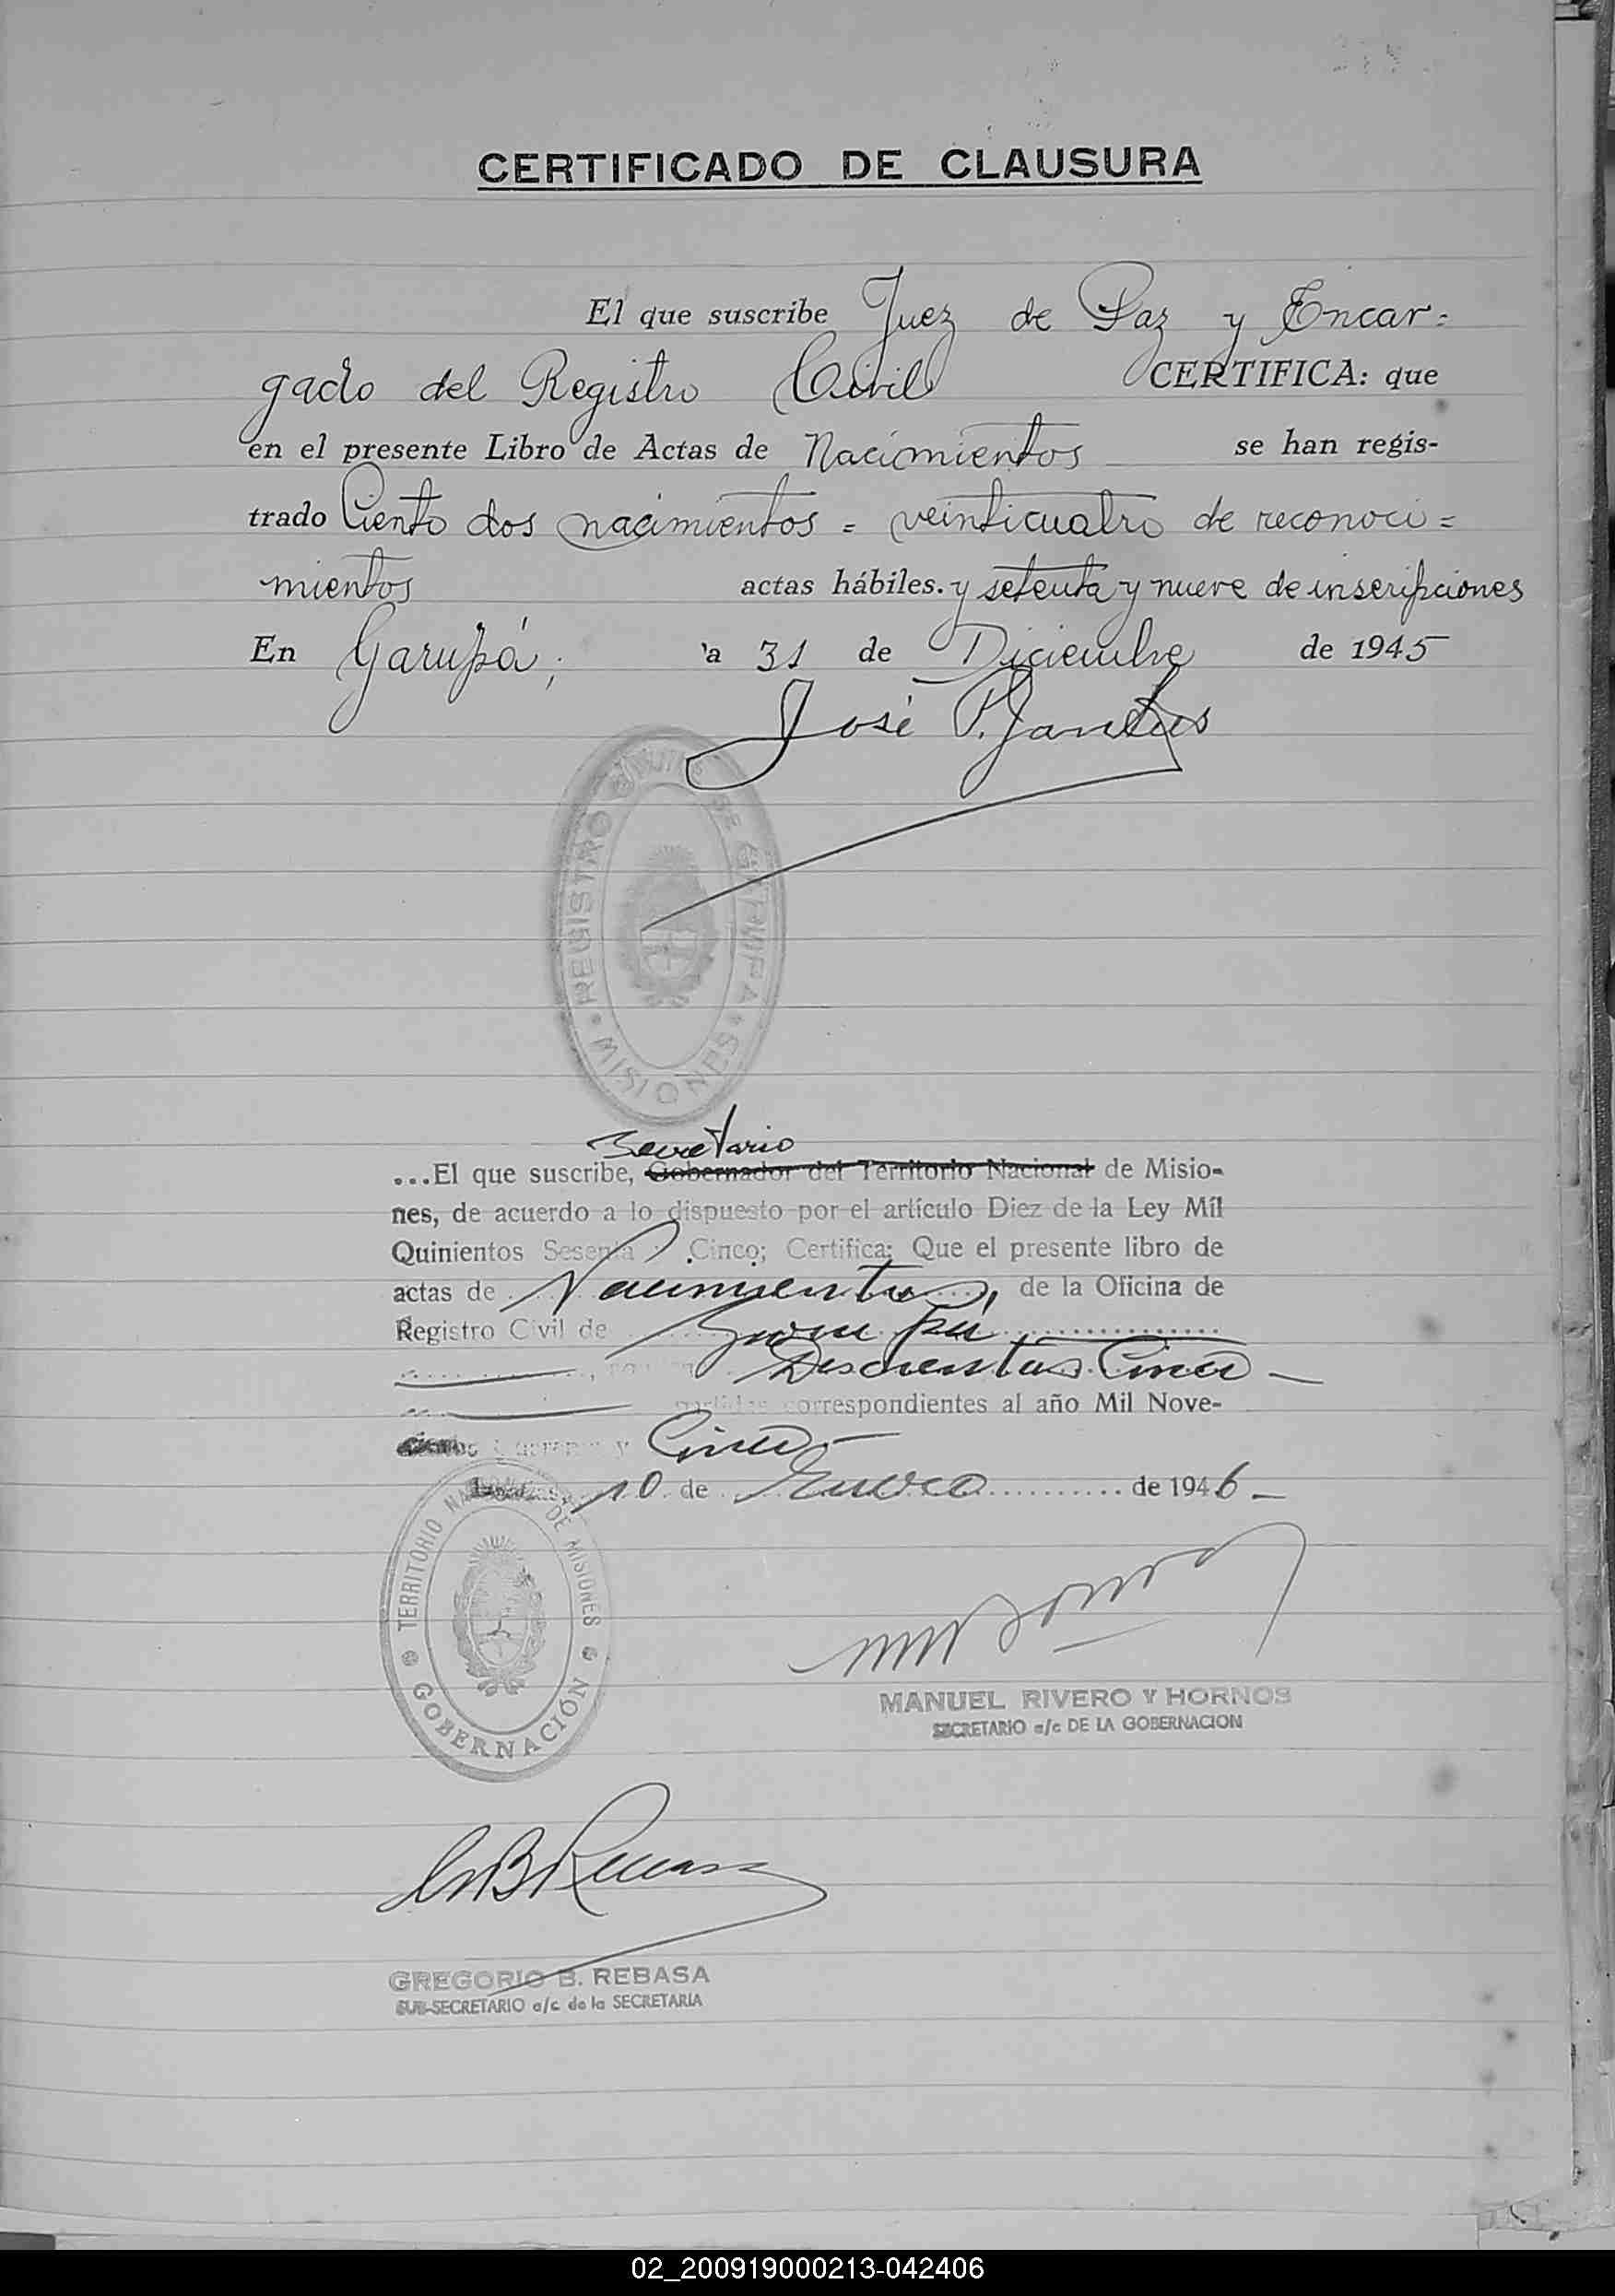 CERTIFICADO DE CLAUSURA
El que suscribe Juez de Paz y Encar=
gado del Registro Civil CERTIFICA: que
en el presente Libro de Actas de Nacimientos se han regis-
trado Ciento dos nacimientos = veinticuatro de reconoci=
mientos actas hábiles. y setenta y nueve de inscripciones
En Garupá; a 31 de Diciembre de 1945
José P.
REGISTRO CIVIL DE GARUPA
MISIONES
Secretario
...El que suscribe, Gobernador del Territorio Nacional de Misio-
nes, de acuerdo a lo dispuesto por el artículo Diez de la Ley Mil
Quinientos Sesenta y Cinco; Certifica: Que el presente libro de
actas de Nacimientos, de la Oficina de
Registro Civil de Garupá
Doscientas Cinco
partidas correspondientes al año Mil Nove-
cientos Cuarenta y Cinco
10 de Enero de 1946
TERRITORIO NACIONAL DE MISIONES
GOBERNACIÓN
MANUEL RIVERO Y HORNOS
SECRETARIO a/c DE LA GOBERNACION
GREGORIO B. REBASA
SUB-SECRETARIO a/c de la SECRETARIA
02_200919000213-042406